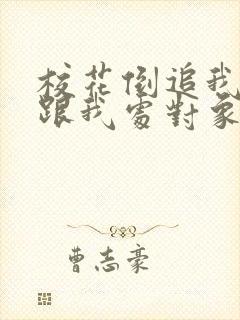 校花倒追我
跟我處對象
曹志豪